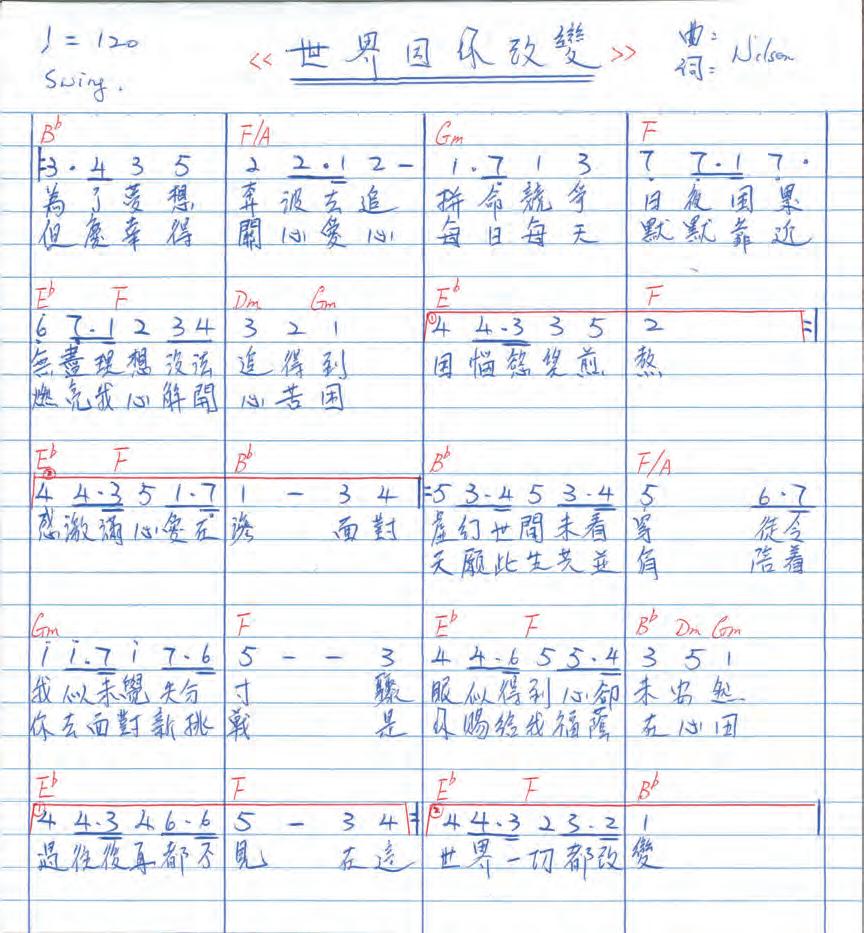 ♩ = 120 << 世界因你改變 >> 曲:
Swing. 詞: Nelson
B♭ F/A Gm F
3 · 4 3 5 2 2 · 1 2 - 1 · 7 1 3 7 7 · 1 7 ·
為了夢想 奔波去追 拼命競爭 日夜困累
但慶幸得 關心愛心 每日每天 默默靠近
E♭ F Dm Gm E♭ F
6 7 · 1 2 3 4 3 2 1 ① 4 4 · 3 3 5 2
無盡理想沒法 追得到 困惱愁煎 熬
燃亮我心解開 心苦困
E♭ F B♭ B♭ F/A
② 4 4 · 3 5 1 · 7 1 - 3 4 5 3 · 4 5 3 · 4 5 6 · 7
感激滿心愛在 面對 虛幻世間未看 穿 從今
天願此生共並 肩 陪着
Gm F E♭ F B♭ Dm Gm
1 1 · 7 1 7 · 6 5 - - 3 4 4 · 6 5 5 · 4 3 5 1
我似未覺失分 寸 驟 眼似得到心卻 未安然
你去面對新挑 戰 是 你賜給我福蔭 在心田
E♭ F E♭ F B♭
① 4 4 · 3 4 6 · 6 5 - 3 4 ② 4 4 · 3 2 3 · 2 1
過往後再都不 見 在這 世界一切都改 變